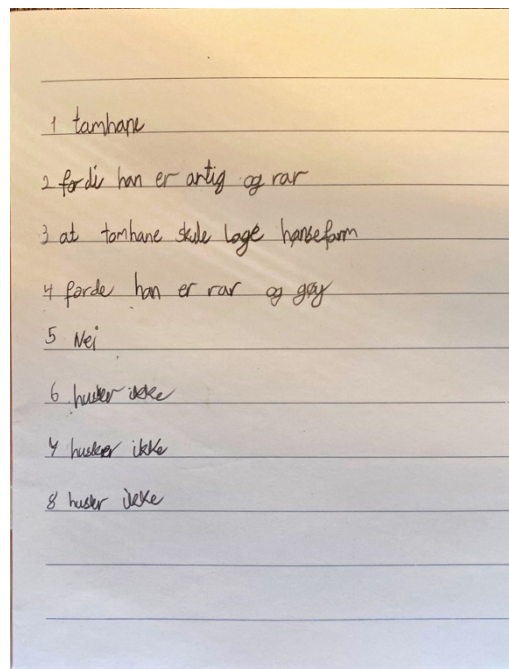 1 tamhane
2 fordi han er artig og rar
3 at tamhane skule lage hønsefarm
4 forde han er rar og gøy
5 Nei
6 husker ikke
7 husker ikke
8 husker ikke